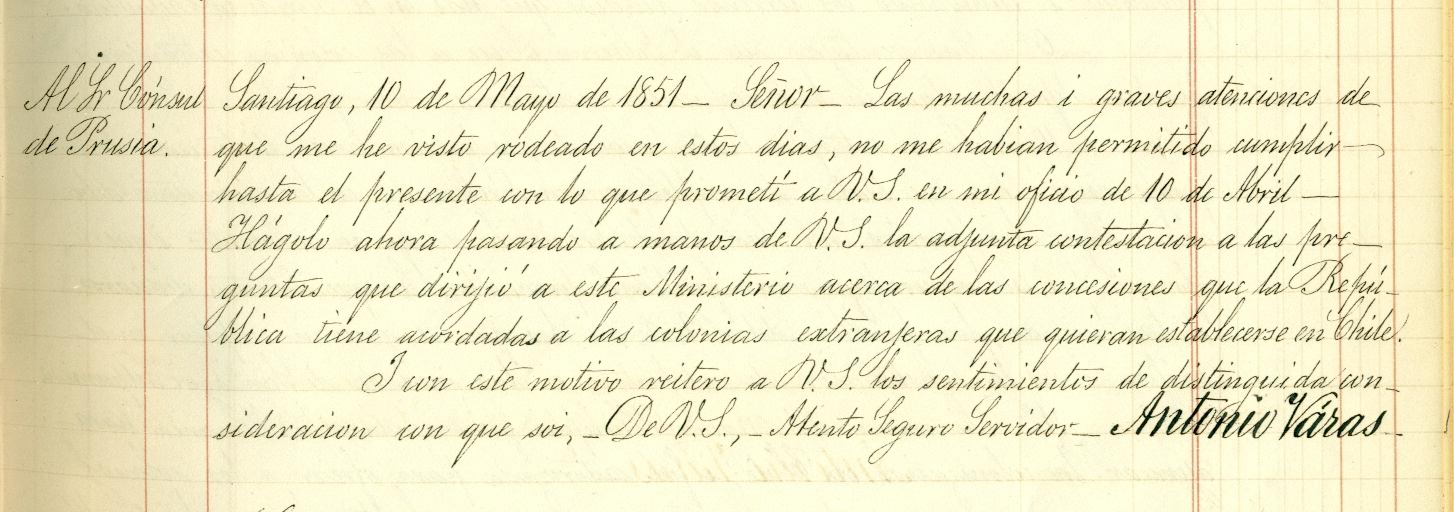 Al Sr Cónsul
de Prusia.
Santiago, 10 de Mayo de 1851_ Señor_ Las muchas i graves atenciones de
que me he visto rodeado en estos dias, no me habian permitido cumplir—
hasta el presente con lo que prometí a V.S. en mi oficio de 10 de Abril—
Hágolo ahora pasando a manos de V.S. la adjunta contestacion a las pre—
guntas que dirijió a este Ministerio acerca de las concesiones que la Repú-
blica tiene acordadas a las colonias extranjeras que quieran establecerse en Chile.
I con este motivo reitero a V.S. los sentimientos de distinguida con-
sideracion con que soi,_De V.S.,_Atento Seguro Servidor_ Antonio Váras_